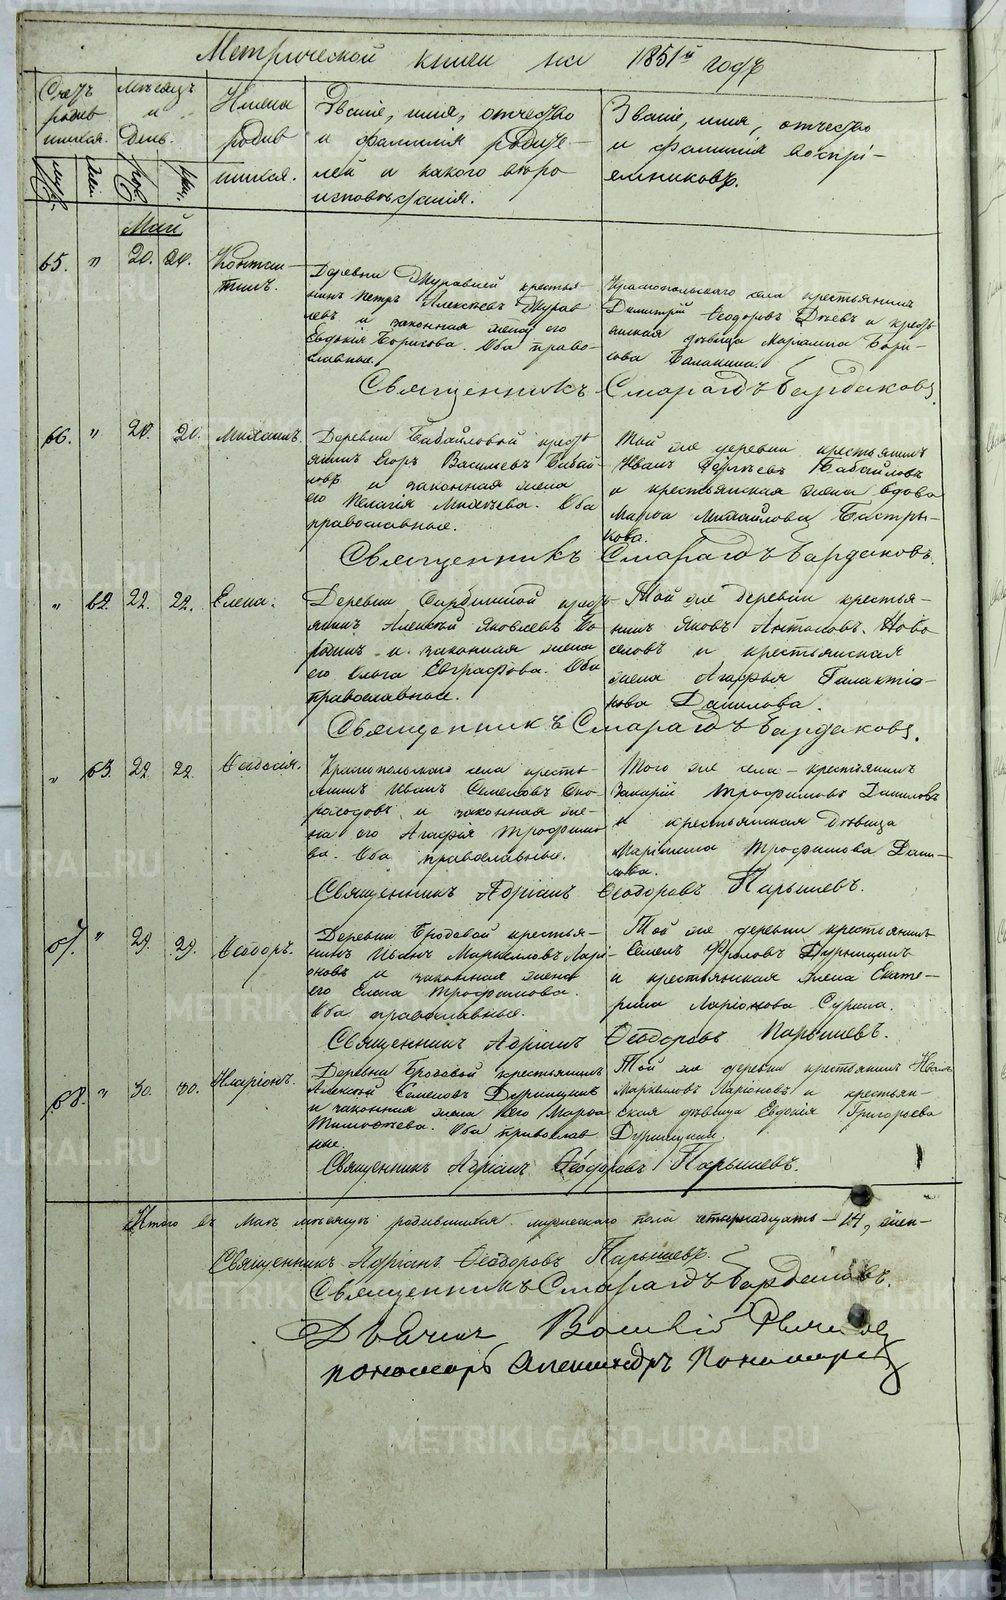 Метрической книги на 1851й годъ
Счетъ родившихся.
Мѣсяцъ и День.
Имена родившихся.
Званіе, имя, отчество и фамилія родителей и какого вѣроисповѣданія.
Званіе, имя, отчество и фамилія воспріемниковъ.
Май
65. " 20. 20.
Деревни крестья-
нинъ Петръ Алексѣевъ Журав
левъ и законная жена его
Евдокія Борисова. Оба право-
славные.
Краснопольского села крестьянинъ
Димитрій Ѳеодоровъ и кресть
янская дѣвица Маріамна Бори-
сова
Священникъ Смарагдъ Бардаковъ.
66. " 20. 20. Михаилъ.
Деревни Бабайловой кресть
янинъ Егоръ Васильевъ Бабай-
ловъ и законная жена
его Пелагія Михѣева. Оба
православные.
Той же деревни крестьянинъ
Иванъ Сергѣевъ Бабайловъ
и крестьянская жена вдова
Марѳа Михайлова Бастры-
кова.
Священникъ Смарагдъ Бардаковъ.
" 62. 22. 22. Елена.
Деревни кресть
янинъ Алексѣй Яковлевъ
и законная жена
его Ольга Евграфова. Оба
православные.
Той же деревни крестья-
нинъ Яковъ Антоновъ Ново
селовъ и крестьянская
жена Агафья Галактіо-
нова Данилова.
Священникъ Смарагдъ Бардаковъ.
" 63. 22. 22. Ѳеодосія.
Краснопольского села кресть-
янинъ Иванъ Семеновъ Ско-
роходовъ и законная же-
на его Агафія Трофимо
ва. Оба православные.
Того же села крестьянинъ
Захарій Трофимовъ Даниловъ
и крестьянская дѣвица
Маріамна Трофимова Дани-
лова.
Священникъ Адріанъ Ѳеодоровъ Парышевъ.
67. " 29. 29. Ѳеодоръ.
Деревни Бродовой крестья-
нинъ Иванъ Маркелловъ Ларі-
оновъ и законная жена
его Елена Трофимова.
Оба православные.
Той же деревни крестьянинъ
Семенъ Фроловъ Дурницинъ
и крестьянская жена Екате-
рина Ларіонова Сурина.
Священникъ Адріанъ Ѳеодоровъ Парышевъ.
68. " 30. 30. Иларіонъ.
Деревни Бродовой крестьянинъ
Алексѣй Семеновъ Дурницинъ
и законная жена его Марѳа
Тимоѳеева. Оба православ
ные.
Той же деревни крестьянинъ Иванъ
Маркелловъ Ларіоновъ и крестьян-
ская дѣвица Евдокія Григорьева
Дурницина.
Священникъ Адріанъ Ѳеодоровъ Парышевъ.
Итого въ маѣ мѣсяцѣ родившихся мужескаго пола четырнадцать - 14, жен-
Священникъ Адріанъ Ѳеодоровъ Парышевъ.
Священникъ Смарагдъ Бардаковъ.
Дьячекъ Василій
пономарь Александръ Пономаревъ
METRIKI.GASO-URAL.RU